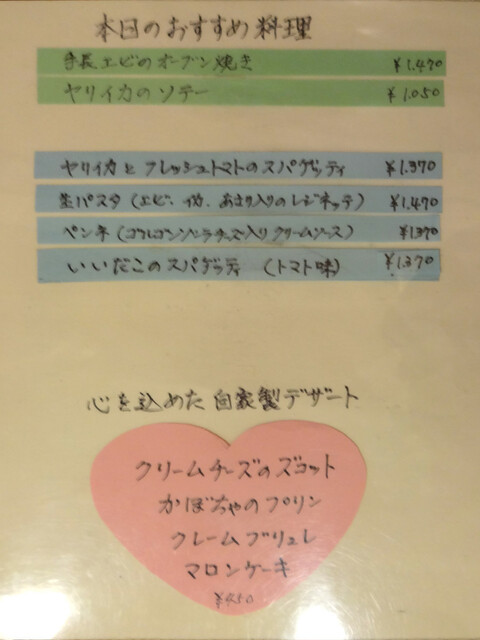 本日のおすすめ料理
手長エビのオーブン焼き ¥1.470
ヤリイカのソテー ¥1.050
ヤリイカとフレッシュトマトのスパゲッティ ¥1.370
生パスタ (エビ、 あさり入りのレジネッテ) ¥1.470
ペンネ (ゴルゴンゾーラチーズ入りクリームソース) ¥1370
いいだこのスパゲッティ (トマト味) ¥1.370
心を込めた自家製デザート
クリームチーズのズコット
かぼちゃのプリン
クレームブリュレ
マロンケーキ
¥450